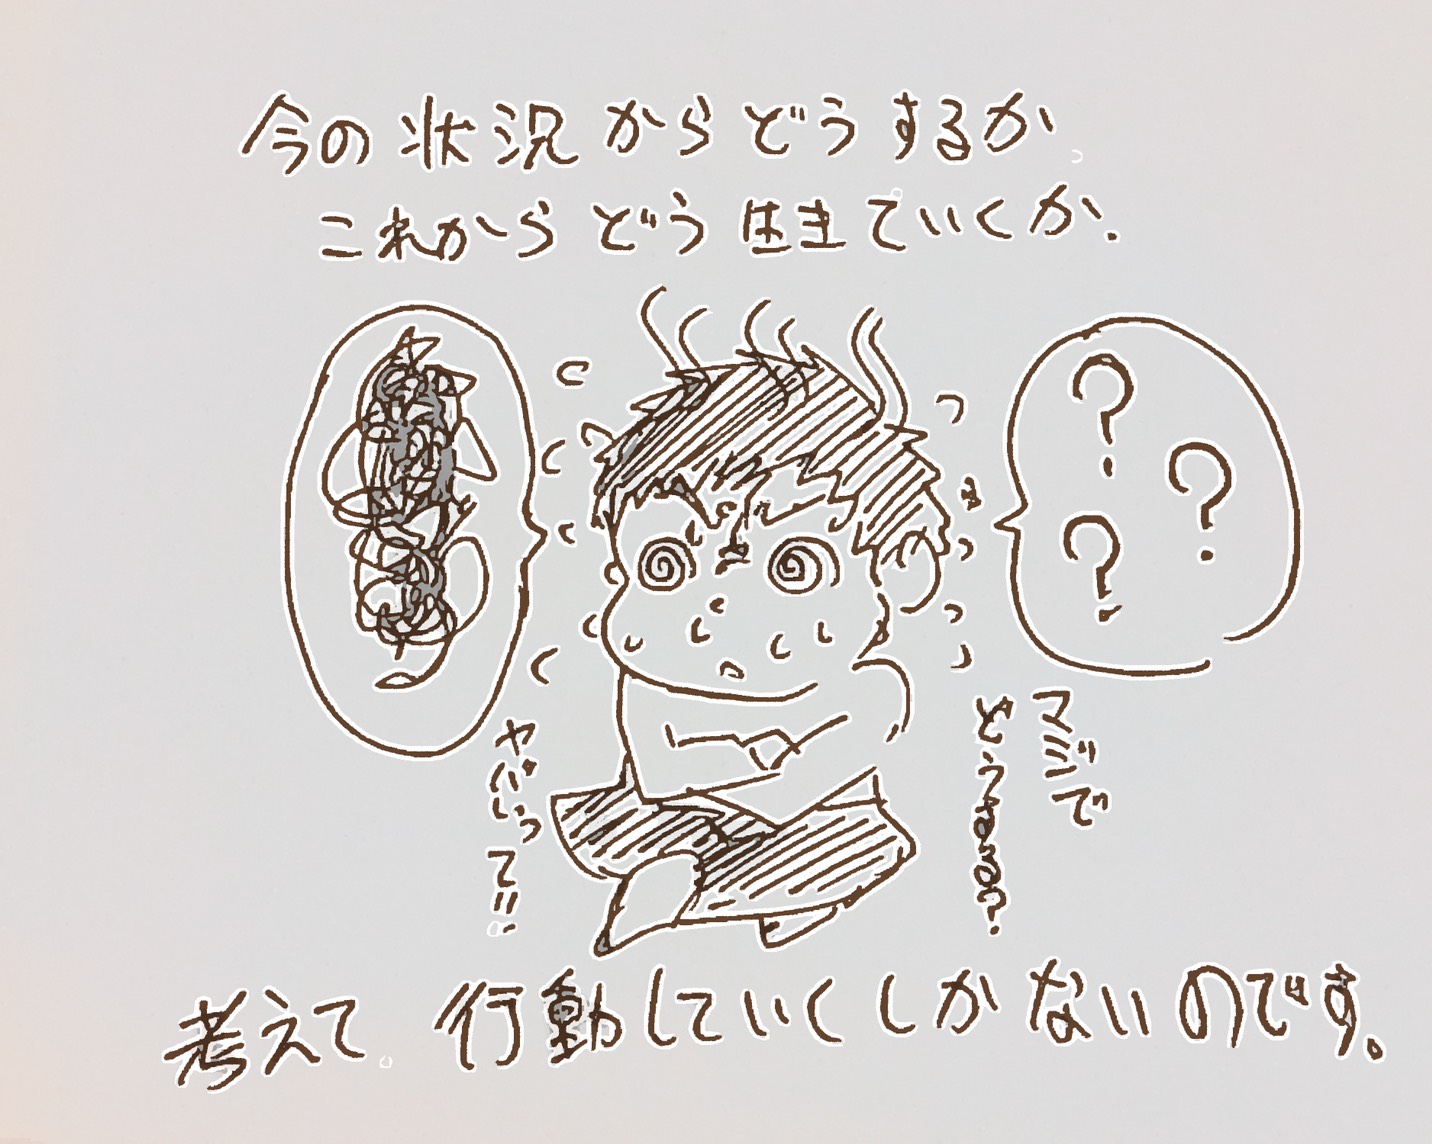 今の状況からどうするか
これからどう生きていくか.
? ? ?
マジで
どうする?
ヤバいって!!
考えて 行動していくしかないのです。